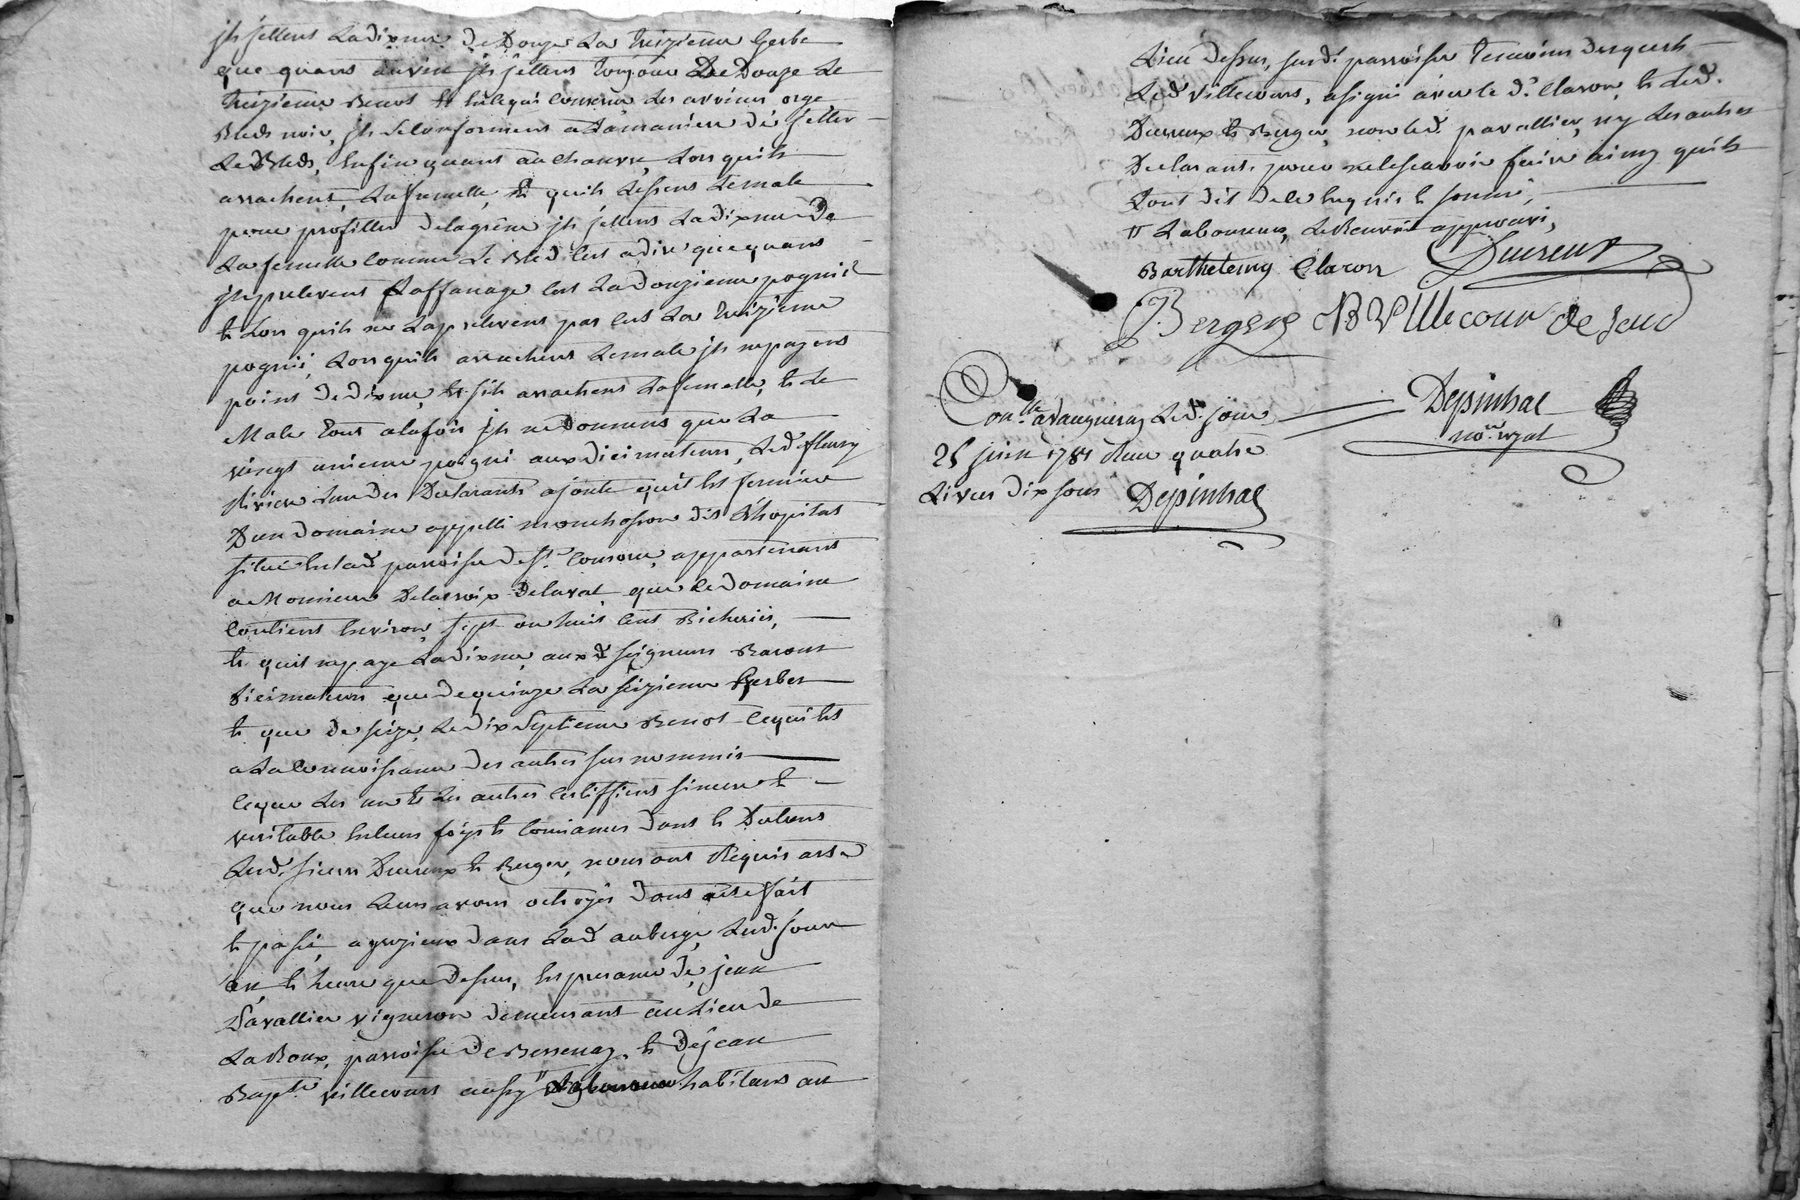 jls jettent La dixme de Douze La treizieme Gerbe
que quant au vin jls jettent toujour De Douze Le
treizieme Benot Et en ce qui Concerne Les avoines, orge
Bleds noir, jls se Conforment a La maniere de jetter
Le Bled, Enfin quant au chanvre, Lors quils
arrachent La femelle, Et quils Lessent Le male
pour profiter de la grene jls jettent La dixme De
La femelle Comme Le Bled C'est a dire que quant
jls prelevent L'affanage C'est La Douzieme pognié
Et Lors quils ne La prelevent pas C'est La treizieme
pognié, Lors quils arrachent Le male jls ne payent
point De dixme, Et s'ils arrachent La femelle, Et Le
Male tout a la fois jls ne Donnent que La
vingt unieme poignié aux dicimateurs, Led. fleury
Riviere L'un des Declarants ajoute qu'il Est fermier
D'un Domaine appellé monchosson dit L'hopital
situé En Lad. parroisse de St. Consorce, appartenant
a Monsieur Delacroix Delaval, que Le Domaine
Contient Environ, sept ou huit Cent Bicherées,
Et quil ne paye La dixme, aux d. seigneurs Barons
dicimateurs que De quinze La seizieme Gerbes
Et que De seize, Le dix septieme Benot Ce qui Est
a La Connoissance Des autres sus nommés
Ce que Les un Et Les autres Certiffient sincere Et
veritable En leurs foys Et Consiances Dont Et Du tout
Led. sieurs Ducreux Et Berger, nous ont Requis acte
que nous Leurs avons octroyés Dont acte fait
Et passé, a grezieux Dans Lad. auberge, Led. jour
an Et heure que Dessus, En presance De jean
Pavallier vigneron Demeurant au Lieu de
La Roux, parroisse De Bessenay, Et De jean
Bapte. villecourt aussy " Laboureur habitant au
Lieu Dessus, susd. parroisse temoins Lesquels
Led. Villecourt, a signé avec Le d. Claron, Et Led.
Ducreux Et Berger, non Led. pavallier, ny Les autres
Declarants pour ne le scavoir faire ainsy quils
L'ont dit De Ce Enquis Et sommé,
" Laboureur, Le Renvoi approuvé,
Barthelemy Claron Ducreux
Berger JB Villecour De Saud
Conlle. a vaugneray Led. jour Depinhac
25 juin 1781 Reçu quatre no.re royal
Livres dix sous Depinhac